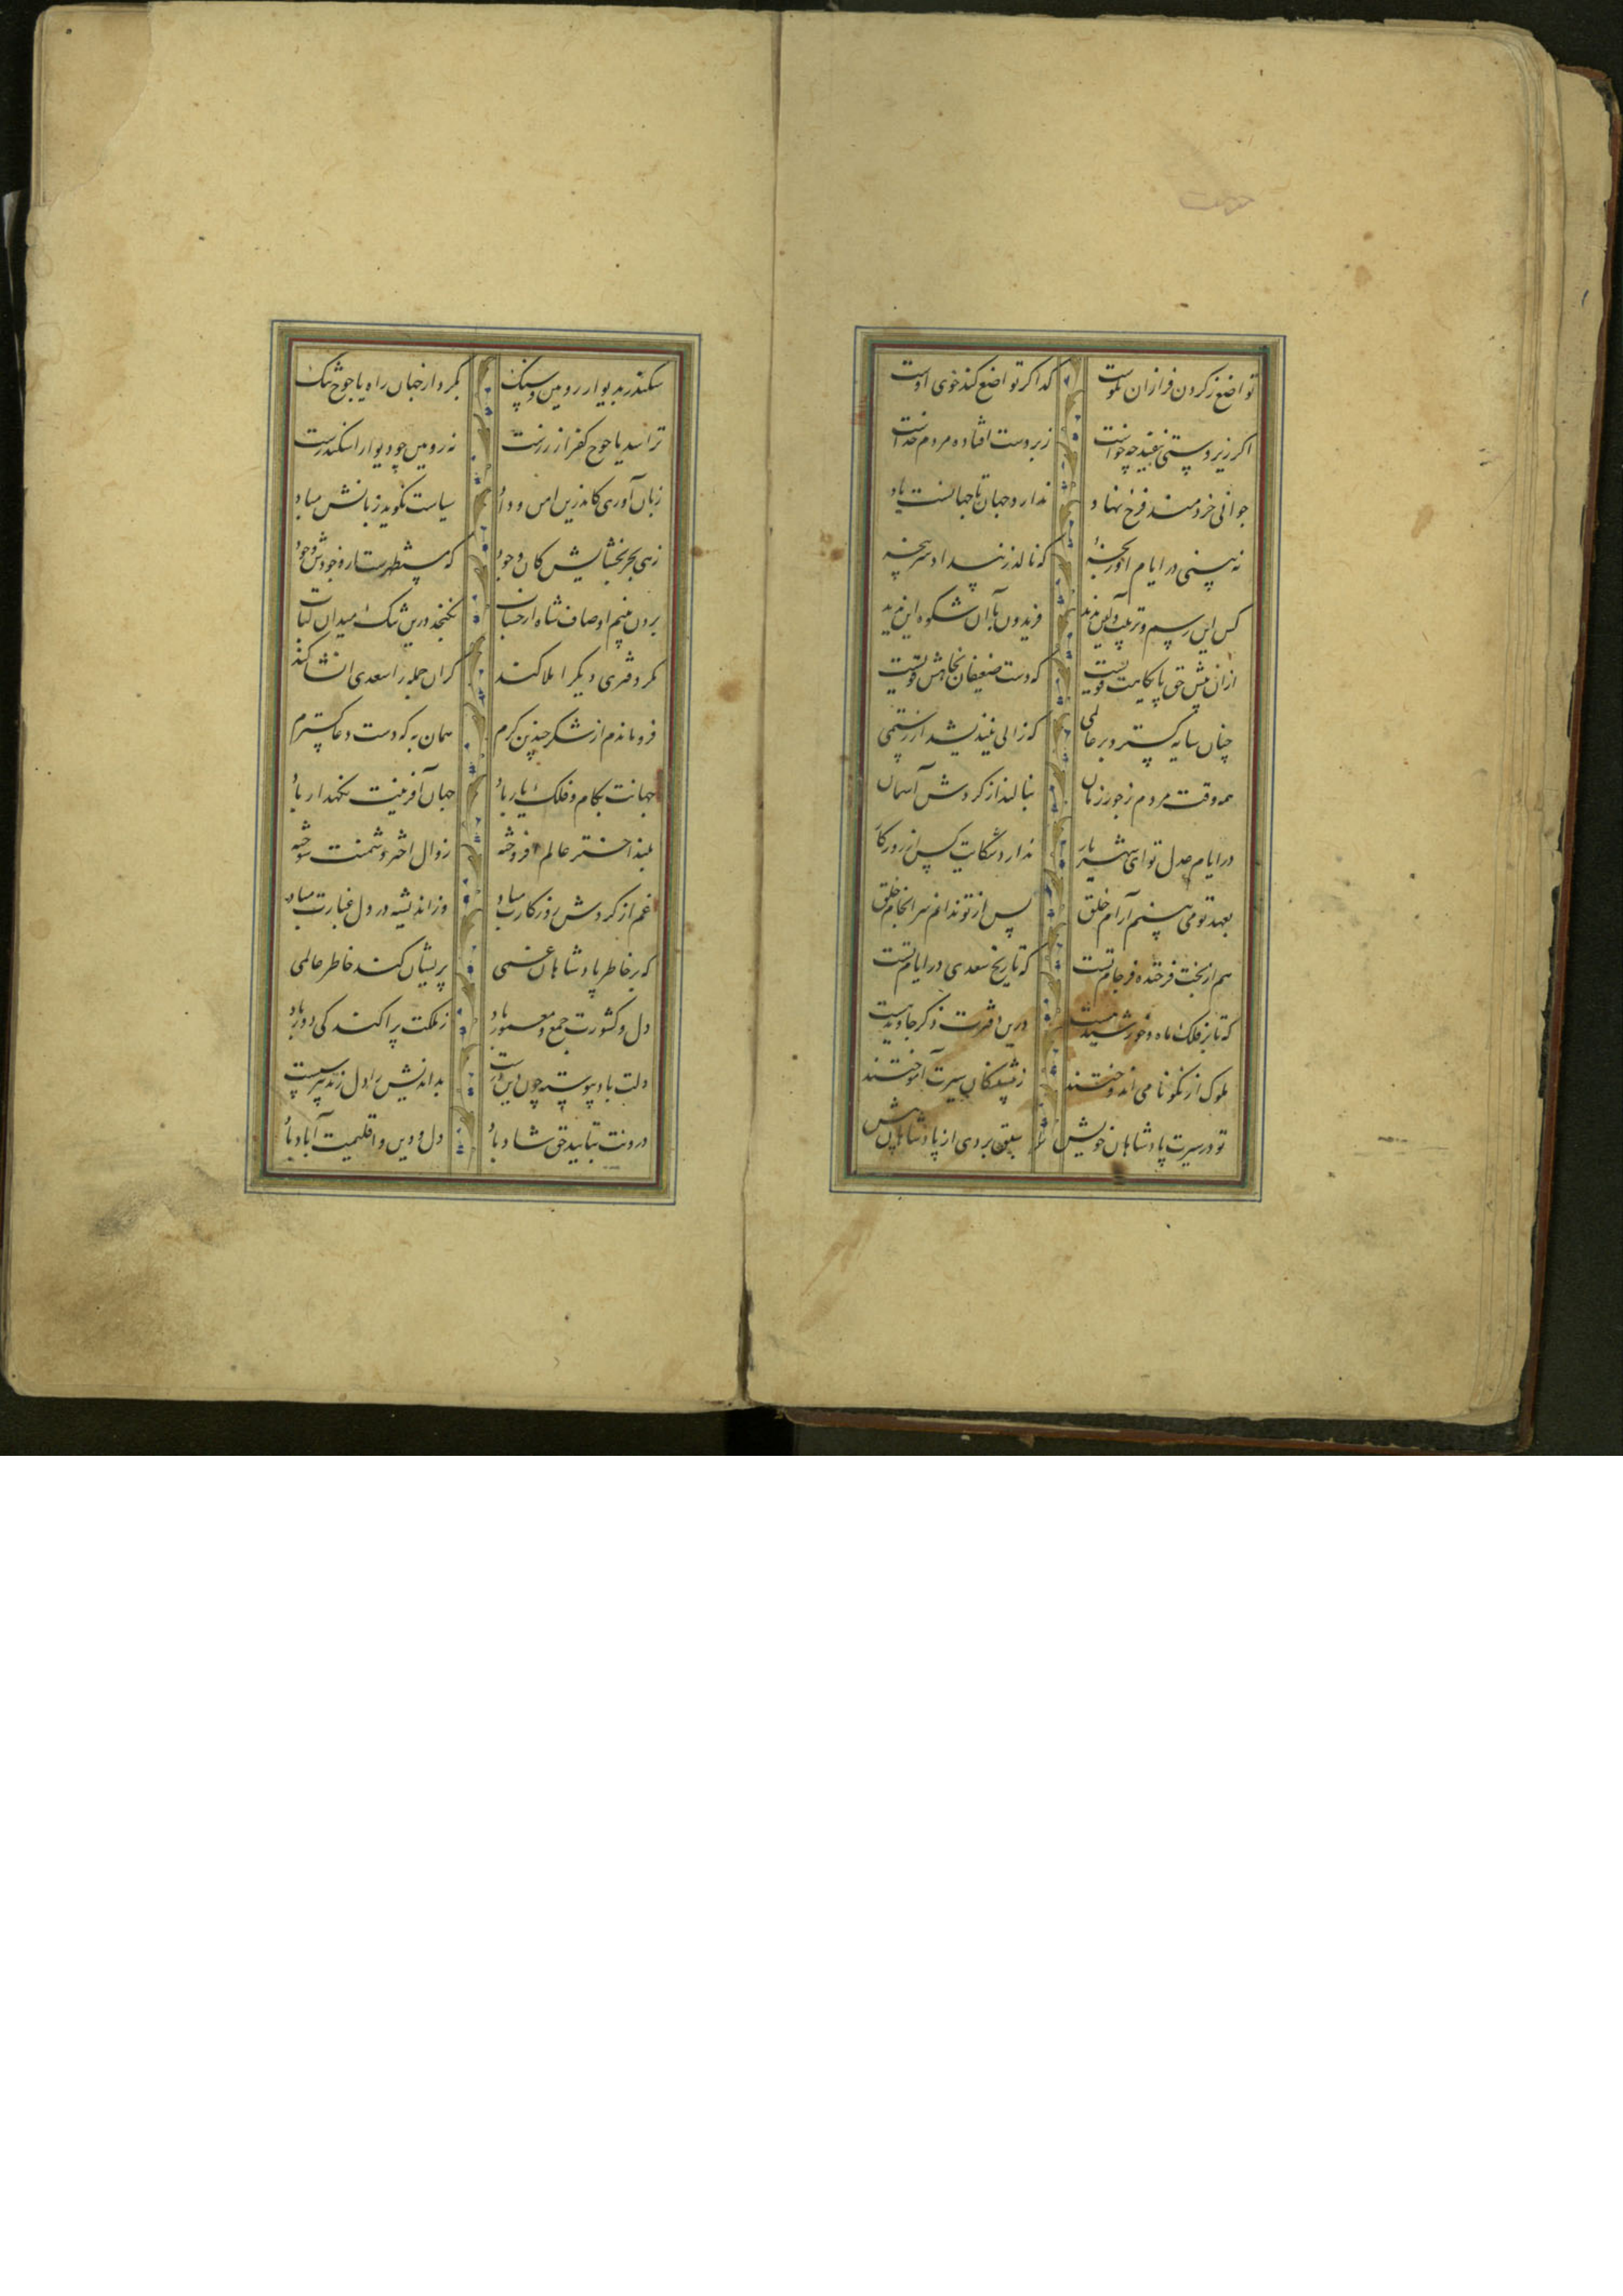 تواضع ز کردن فرازان نکوست کدا کر تواضع کند خوی اوست
اکر زیر دستی بیفتد چه خواست زبر دست افتاده مردم خداست
جوانی خردمند فرخ نهاد ندارد جهان تا جهانست یاد
نه بینی در ایام او رنجه که نالد ز بیداد سرپنجه
کس این رسم و ترتیب و آیین ندید فریدون با آن شکوه این ندید
ازان پیش حق پایکاهت قویست که دست ضعیفان بجاهش قویست
چنان سایه کسترد بر عالمی که زالی نیندیشد از رستمی
همه وقت مردم ز جور زمان بنالند از کردش آسمان
در ایام عدل تو ای شهریار ندارد شکایت کس از روزکار
بعهد تو می بینم آرام خلق پس از تو ندانم سرانجام خلق
هم از بخت فرخنده فرجام تست که تاریخ سعدی در ایام تست
که تا بر فلک ماه و خورشید هست درین دفترت ذکر جاوید هست
ملوک از نکو نامی اندوختند ز پیشینکان سیرت آموختند
تو در سیرت پادشاهان خویش سبق بردی از پادشاهان پیش
سکندر بدیوار رویین و سنک بکرد از جهان راه یاجوج تنک
ترا سد یاجوج کفر از زرست نه رویین چو دیوار اسکندرست
زبان آوری کاندرین امن و داد سپاست نکوید زبانش مباد
زهی بحر بخشایش کان وجود که مستظهرست از وجودش وجود
برون بینم اوصاف شاه از حساب نکنجد درین تنک میدان کتاب
کر آن جمله را سعدی انشا کند مکر دفتری دیکر املا کند
فرو ماندم از شکر چندین کرم همان به که دست دعا کسترم
جهانت بکام و فلک یار باد جهان آفرینت نکهدار باد
بلند اخترت عالم افروخته زوال اختر دشمنت سوخته
غم از کردش روزکارت مباد وز اندیشه در دل غبارت مباد
که بر خاطر پادشاهان غمی پریشان کند خاطر عالمی
دل و کشورت جمع و معمور باد ز ملکت پراکندکی دور باد
دلت باد پیوسته چون دین درست بداندیش را دل ز تدبیر سست
درونت بتایید حق شاد باد دل و دین و اقلیمت آباد باد